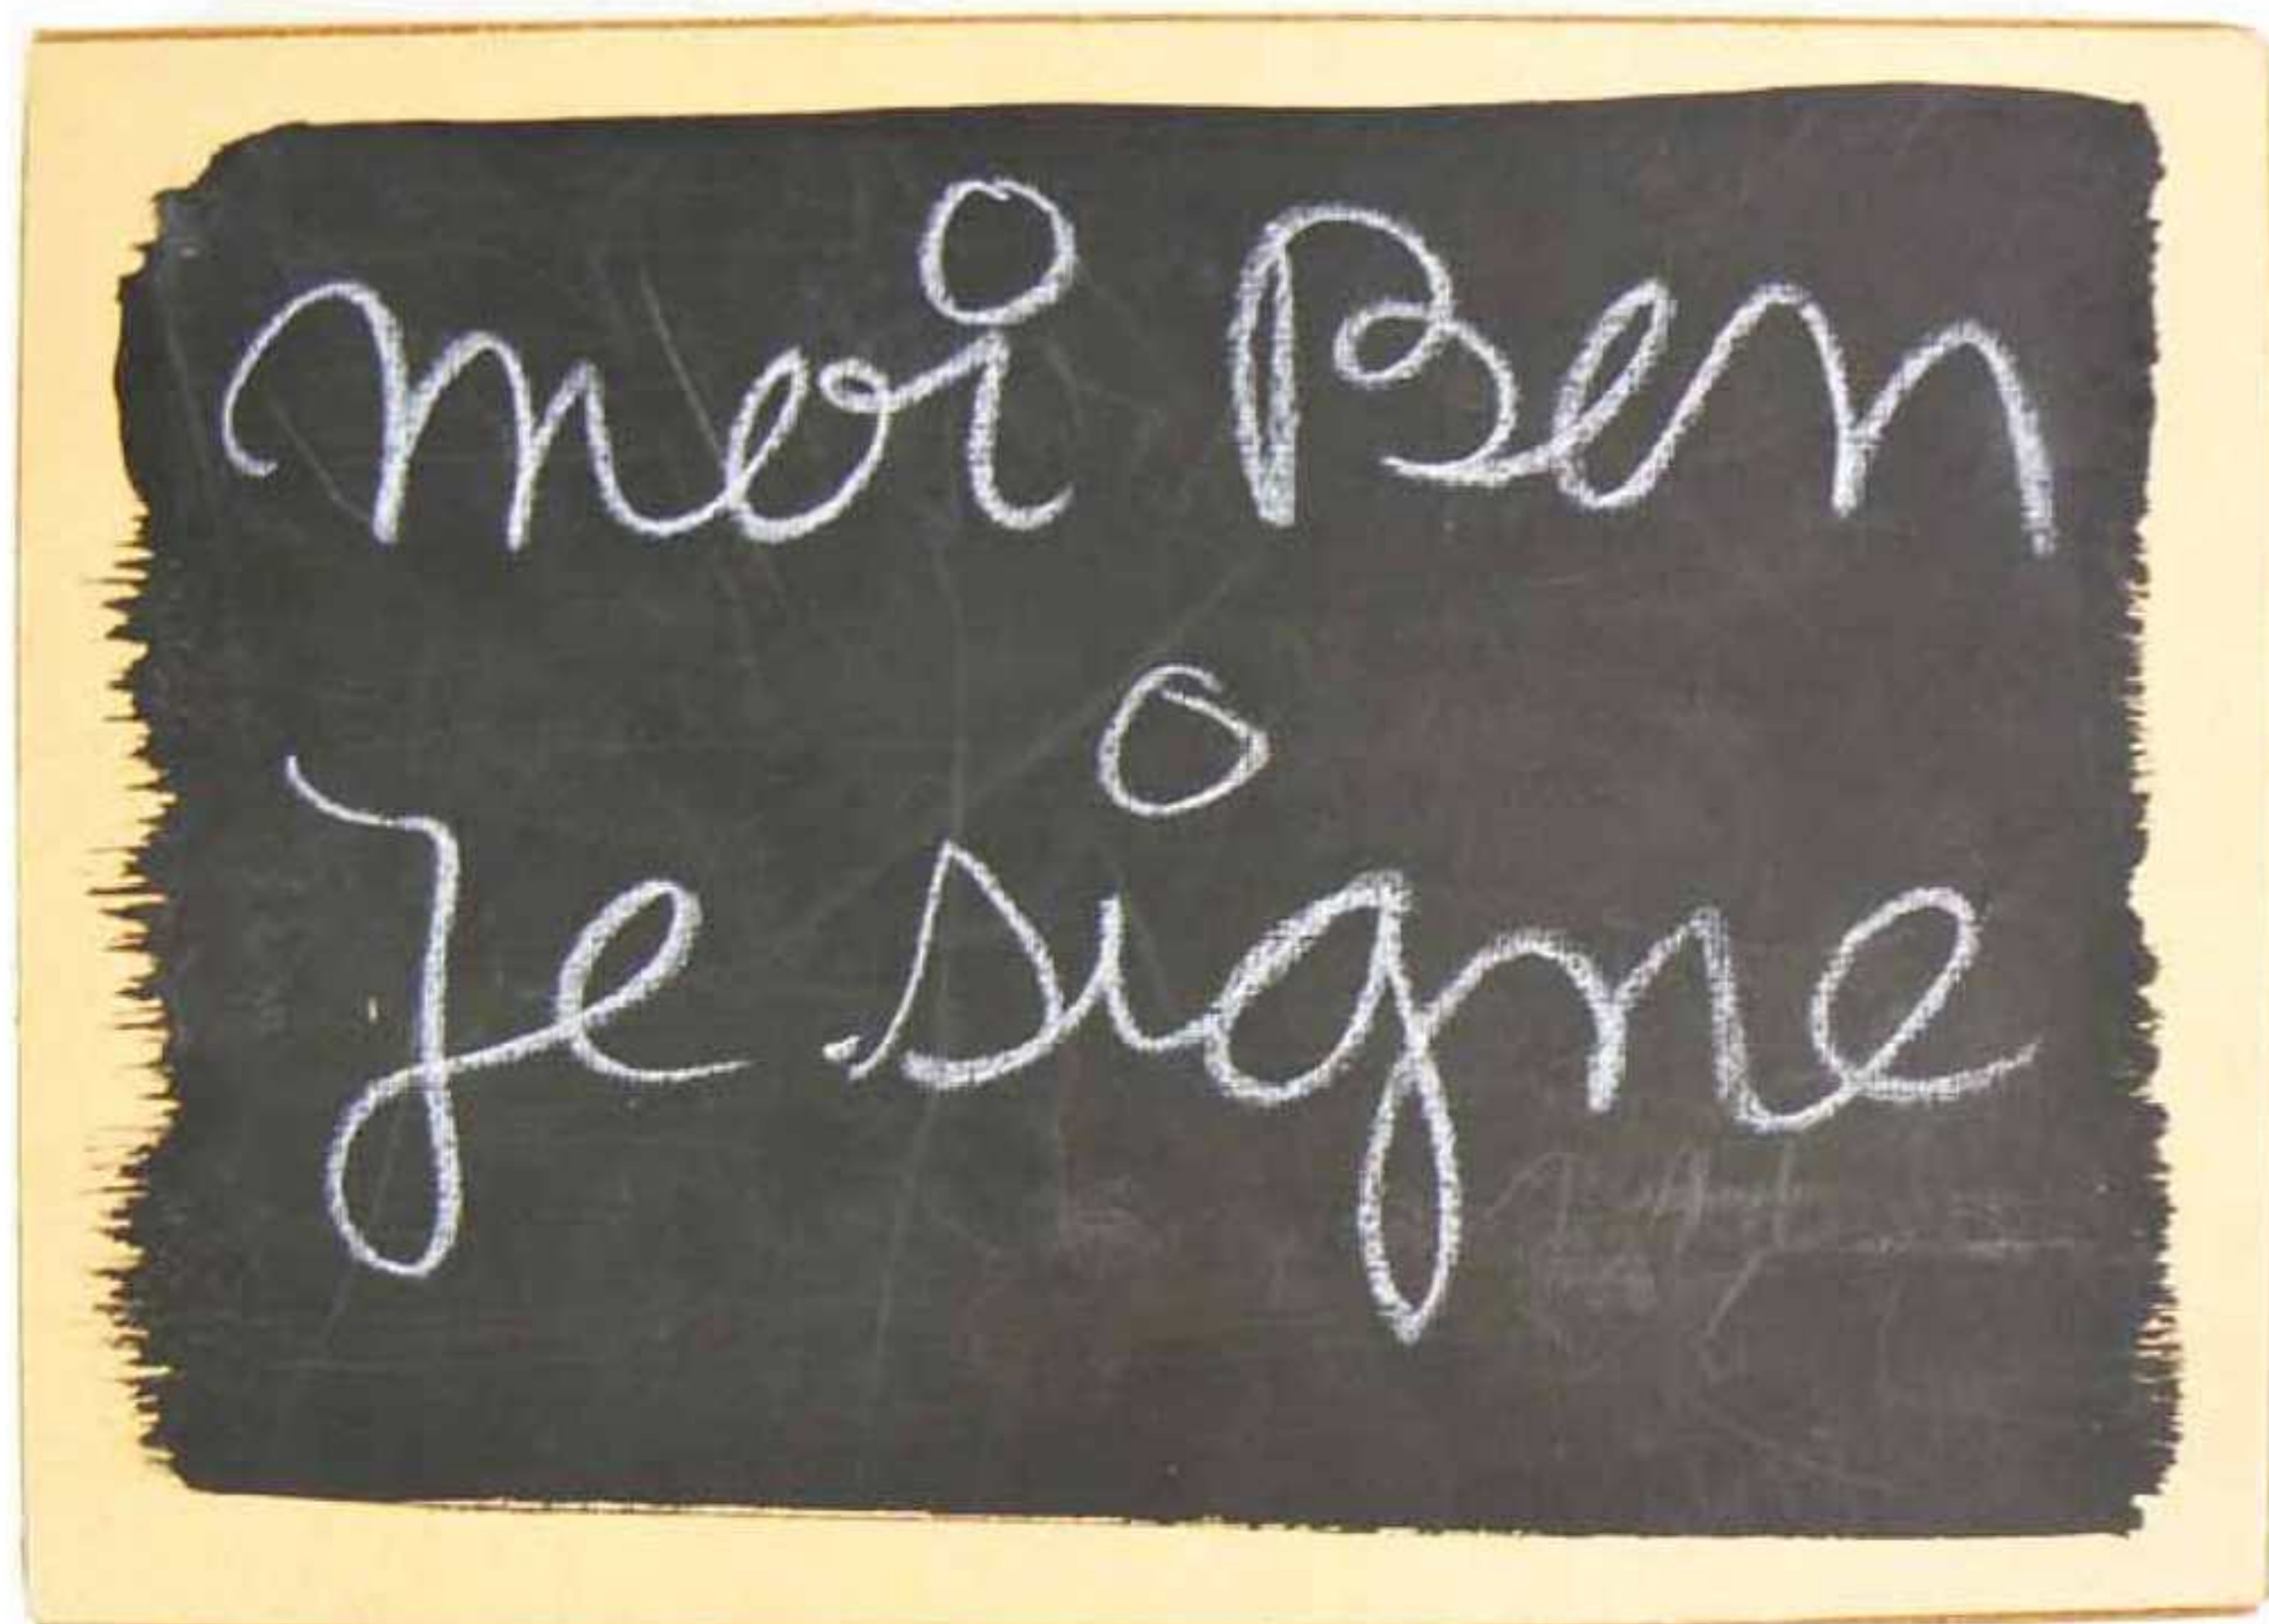 moi Ben
Je signe